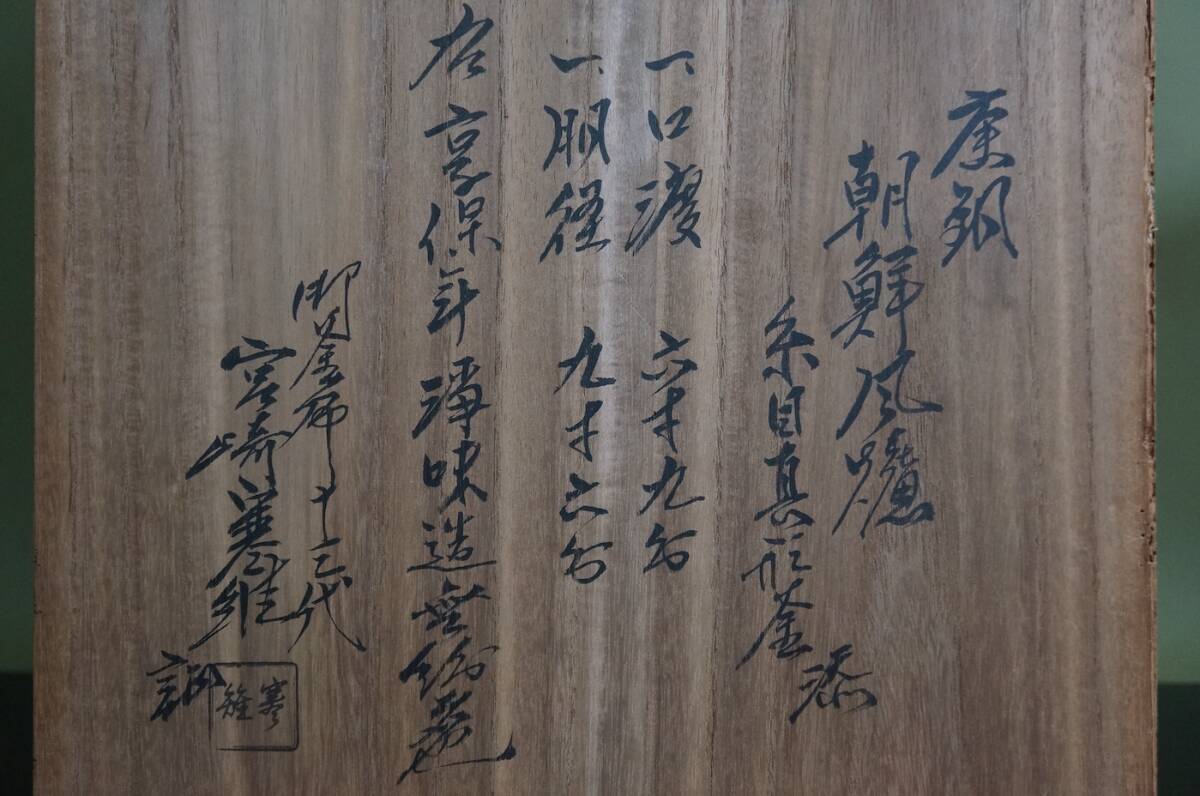 唐銅
朝鮮風爐
糸目真形釜 添
一、口渡 六寸九分
一、胴径 九寸六分
右享保年浄味造無紛者也
御釜師十三代
宮崎寒雉
寒雉